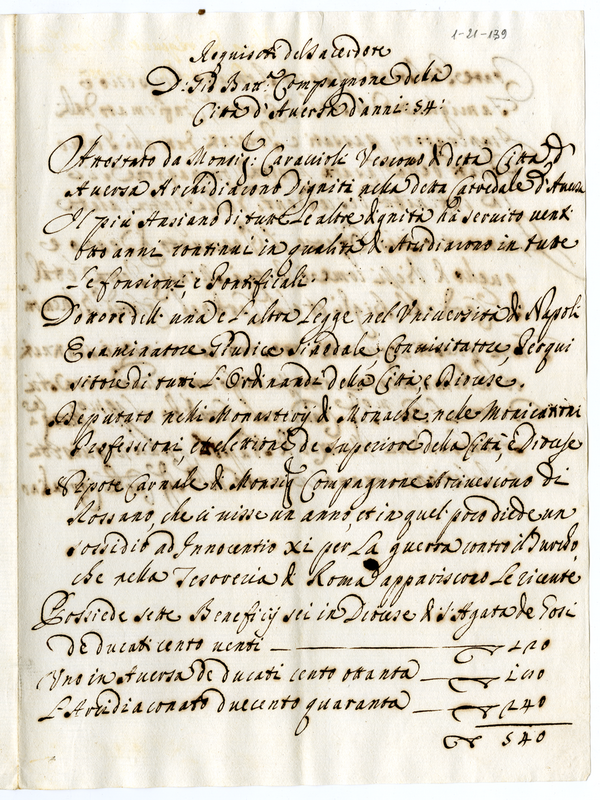 1-21-139
Requisiti del Sacerdore
D: Gio Batt.a Compagnone della
Città d'Aversa d'anni: 54:
Attostato da Monsig: Caraccioli Vescovo di detta Città d'
Aversa Archidiacono Dignità nella detta Catredale d'Aversa
Il più Ansiano di tutte le altre dignità ha servito venti
otto anni continui in qualità di Arcidiacono in tutte
le fonsioni, e Pontificali.
Dottore dell' una e l'altra Legge nel Università di Napoli
Esaminatore Giudice Sinodale, Convisitatore, Perqui
sitore di tutti l'Ordinandi della Città, e Diocese.
Deputato nelli Monasterij di Monache nele Monicationi
Professioni, et elettione de Superiore della Città, e Diocese
Nipote Carnale di Monsig Compagnone Arcivescovo di
Rossano, che ci visse un anno et in quel poco diede un
sossidio ad Innocentio XI per la guerra contro il Turcho,
che nella Tesoveria di Roma appariscono le ricevute
Possiede sette Beneficij sei in Diocese di S. Agata de Goti
de ducati cento venti — 120
Uno in Aversa de ducati cento ottanta — 180
L'Arcidiaconato duecento quaranta — 240
540